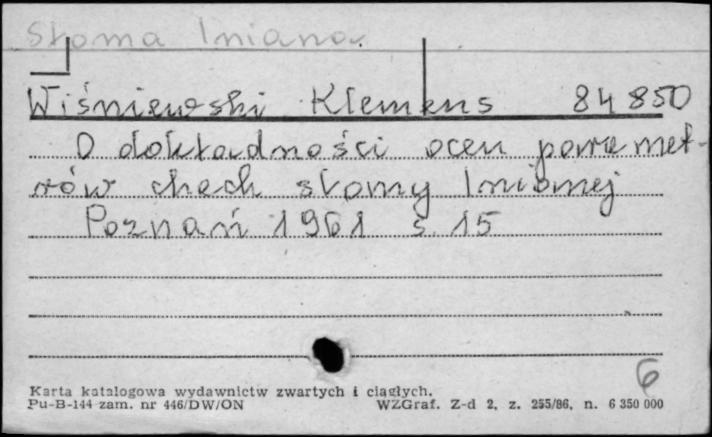 Słoma lniana
Wiśniewski Klemens 84 850
O dokładności ocen paramet-
rów cech słomy lnianej
Poznań 1961 s. 15
6
Karta katalogowa wydawnictw zwartych i ciągłych.
Pu-B-144 zam. nr 446/DW/ON WZGraf. Z-d 2, z. 255/86, n. 6 350 000